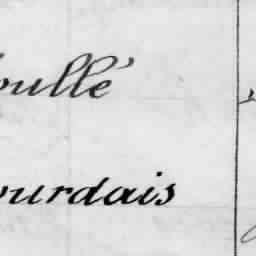 oullé
ourdais